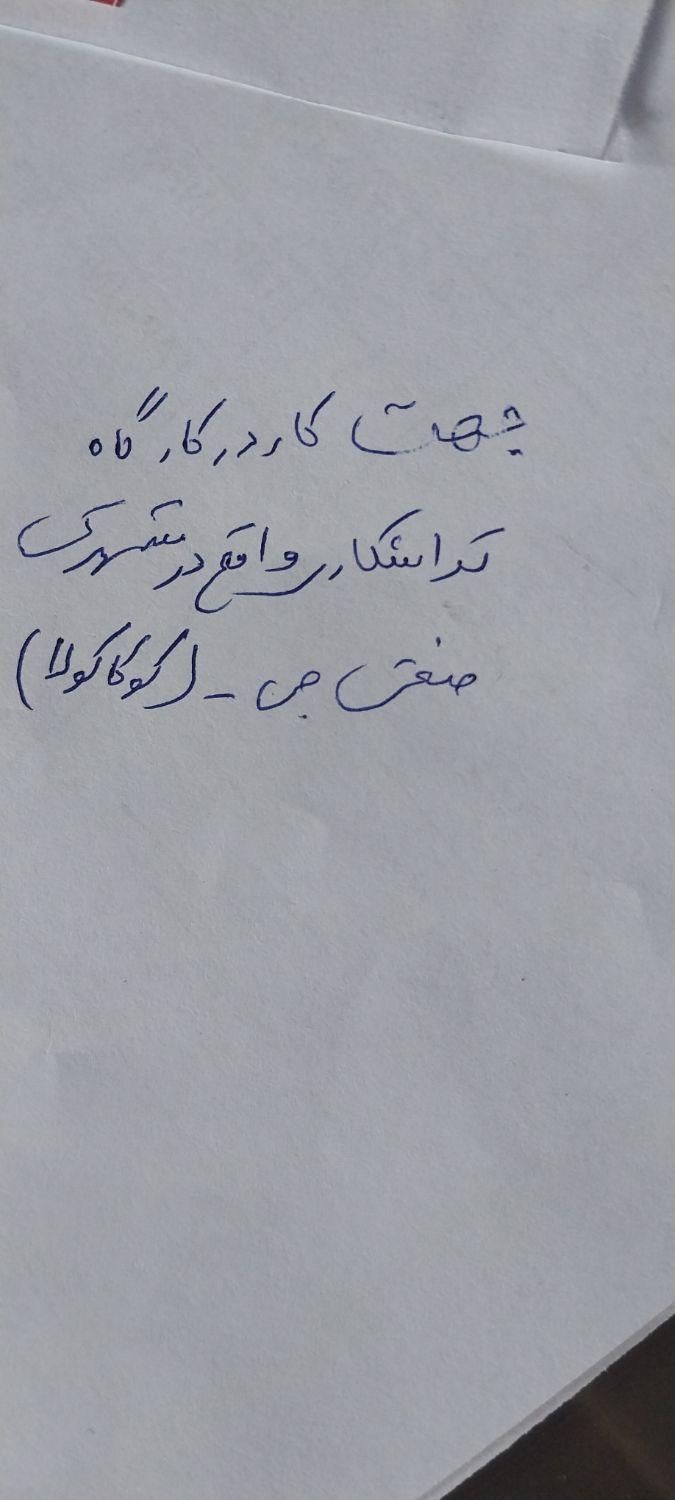 جهت کار در کارگاه
تراشکاری واقع در شهرک
صنعتی جی - (کوکاکولا)